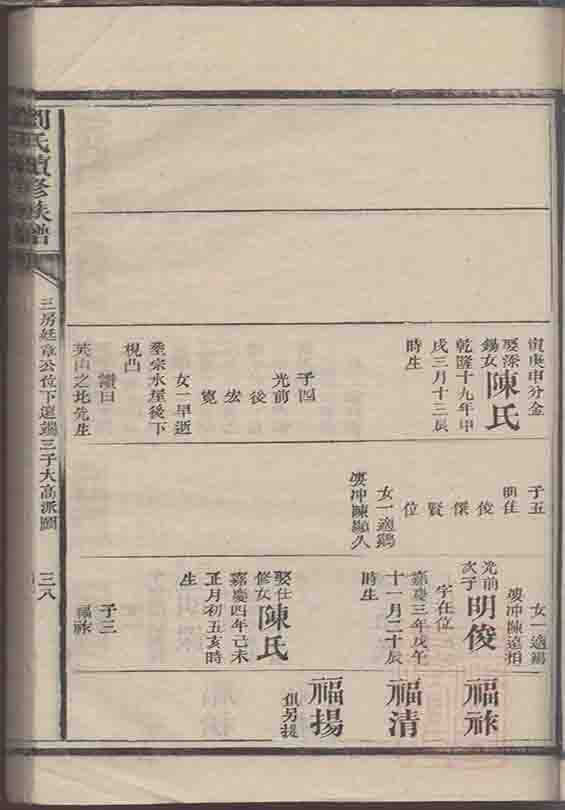 劉氏續修族譜
三房廷章公位下遠端三子大高派圖
三八
寅庚申分金
娶添
錫女
陳氏
乾隆十九年甲
戌三月十三辰
時生
子四
光前
後
宏
寬
女一早逝
葬宗水屋後下
梘凸
讚曰
英山之北先生
子五
明佳
俊
傑
賢
位
女一適鷄
婆冲陳顯久
女一適鷄
婆冲陳遠相
光前
次子
明俊
字在位
嘉慶三年戊午
十一月二十辰
時生
娶仕
修女
陳氏
嘉慶四年己未
正月初五亥時
生
子三
福祿
福祿
福清
福揚
俱另提